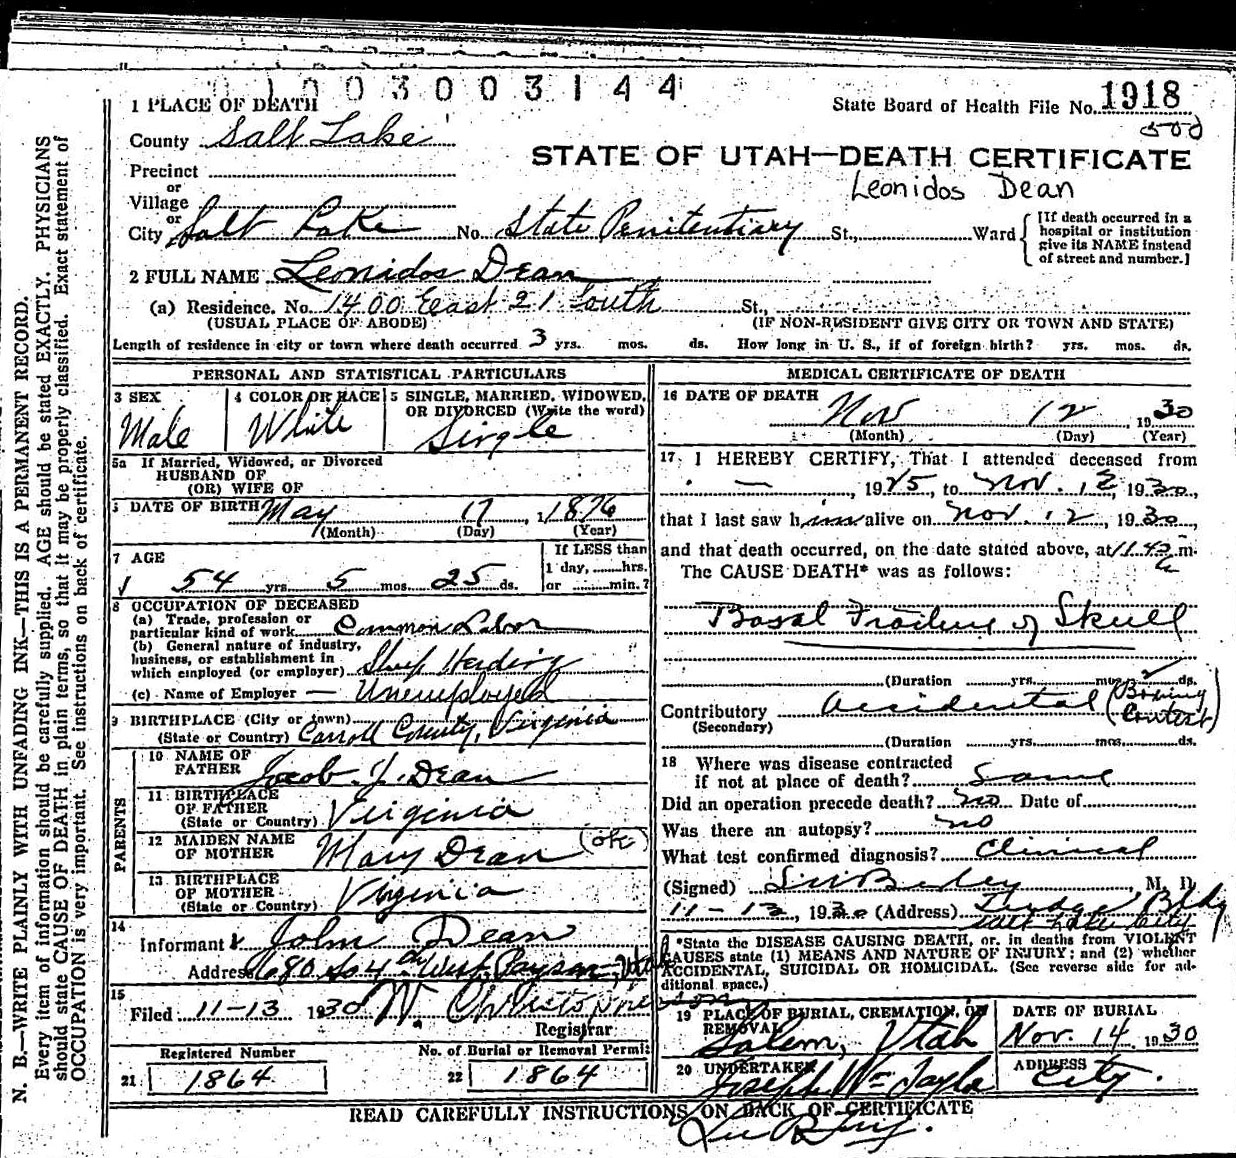 01003003144
1 PLACE OF DEATH
State Board of Health File No. 1918
County Salt Lake
STATE OF UTAH—DEATH CERTIFICATE
Precinct
Leonidos Dean
or
Village
or
City Salt Lake No. State Penitentiary St., Ward
[If death occurred in a hospital or institution give its NAME instead of street and number.]
2 FULL NAME Leonidos Dean
(a) Residence. No. 1400 East 21 South St.,
(USUAL PLACE OF ABODE) (IF NON-RESIDENT GIVE CITY OR TOWN AND STATE)
Length of residence in city or town where death occurred 3 yrs. mos. ds. How long in U. S., if of foreign birth? yrs. mos. ds.
PERSONAL AND STATISTICAL PARTICULARS
3 SEX Male
4 COLOR OR RACE White
5 SINGLE, MARRIED, WIDOWED, OR DIVORCED (Write the word) Single
5a If Married, Widowed, or Divorced
HUSBAND OF
(OR) WIFE OF
6 DATE OF BIRTH May 17, 1876
(Month) (Day) (Year)
7 AGE
54 yrs. 5 mos. 25 ds.
If LESS than
1 day, hrs.
or min.?
8 OCCUPATION OF DECEASED
(a) Trade, profession or
particular kind of work Common Labor
(b) General nature of industry,
business, or establishment in
which employed (or employer) Sheep Herding
(c) Name of Employer — Unemployed
9 BIRTHPLACE (City or town)
(State or Country) Carroll County, Virginia
PARENTS
10 NAME OF
FATHER Jacob J. Dean
11 BIRTHPLACE
OF FATHER
(State or Country) Virginia
12 MAIDEN NAME
OF MOTHER Mary Dean (ok)
13 BIRTHPLACE
OF MOTHER
(State or Country) Virginia
14
Informant John Dean
Address 680 So 4th West, Payson, Utah
15
Filed 11-13 1930 W. Christopherson
Registrar
Registered Number
21 1864
No. of Burial or Removal Permit
22 1864
MEDICAL CERTIFICATE OF DEATH
16 DATE OF DEATH
Nov 12, 1930
(Month) (Day) (Year)
17 I HEREBY CERTIFY, That I attended deceased from
—, 1925, to Nov. 12, 1930,
that I last saw him alive on Nov. 12, 1930,
and that death occurred, on the date stated above, at m.
The CAUSE DEATH* was as follows:
Basal Fracture of Skull
(Duration yrs. mos. ds.
Contributory Accidental (Boxing Contest)
(Secondary)
(Duration yrs. mos. ds.
18 Where was disease contracted
if not at place of death? Same
Did an operation precede death? no Date of
Was there an autopsy? no
What test confirmed diagnosis? Clinical
(Signed) M. D.
11-13, 1930 (Address) Judge Bldg
Salt Lake City
*State the DISEASE CAUSING DEATH, or, in deaths from VIOLENT
CAUSES state (1) MEANS AND NATURE OF INJURY; and (2) whether
ACCIDENTAL, SUICIDAL OR HOMICIDAL. (See reverse side for ad-
ditional space.)
19 PLACE OF BURIAL, CREMATION, OR
REMOVAL
Salem, Utah
DATE OF BURIAL
Nov. 14 1930
20 UNDERTAKER
Joseph Wm Taylor
ADDRESS
City.
READ CAREFULLY INSTRUCTIONS ON BACK OF CERTIFICATE
N. B.—WRITE PLAINLY WITH UNFADING INK—THIS IS A PERMANENT RECORD.
Every item of information should be carefully supplied. AGE should be stated EXACTLY. PHYSICIANS
should state CAUSE OF DEATH in plain terms, so that it may be properly classified. Exact statement of
OCCUPATION is very important. See instructions on back of certificate.